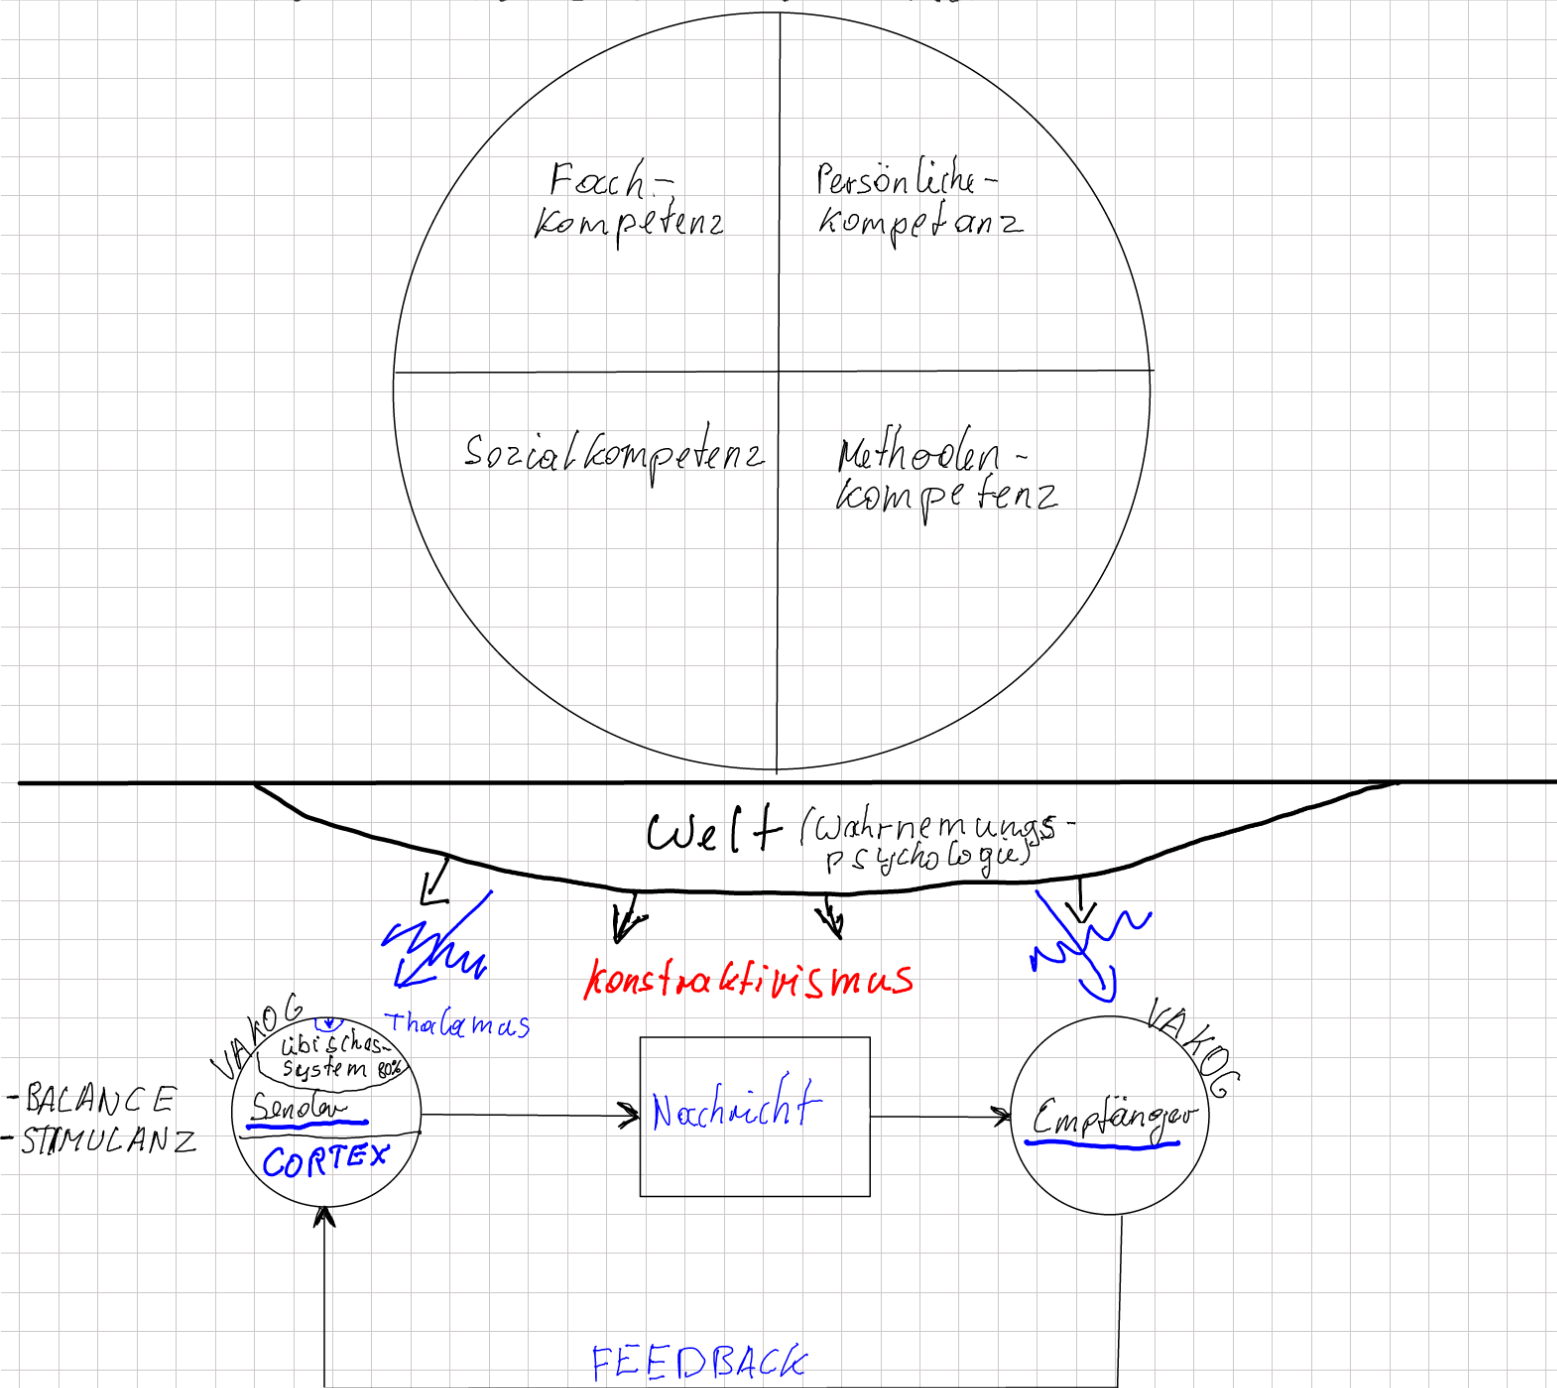 Fach-
kompetenz
Persönliche-
kompetanz
Sozialkompetenz
Methoden-
kompetenz
Welt (Wahrnemungs-
psychologie)
konstraktivismus
Thalamus
VAKOG
libisches-
system 80%
Sender
CORTEX
-BALANCE
-STIMULANZ
Nachricht
VAKOG
Empfänger
FEEDBACK